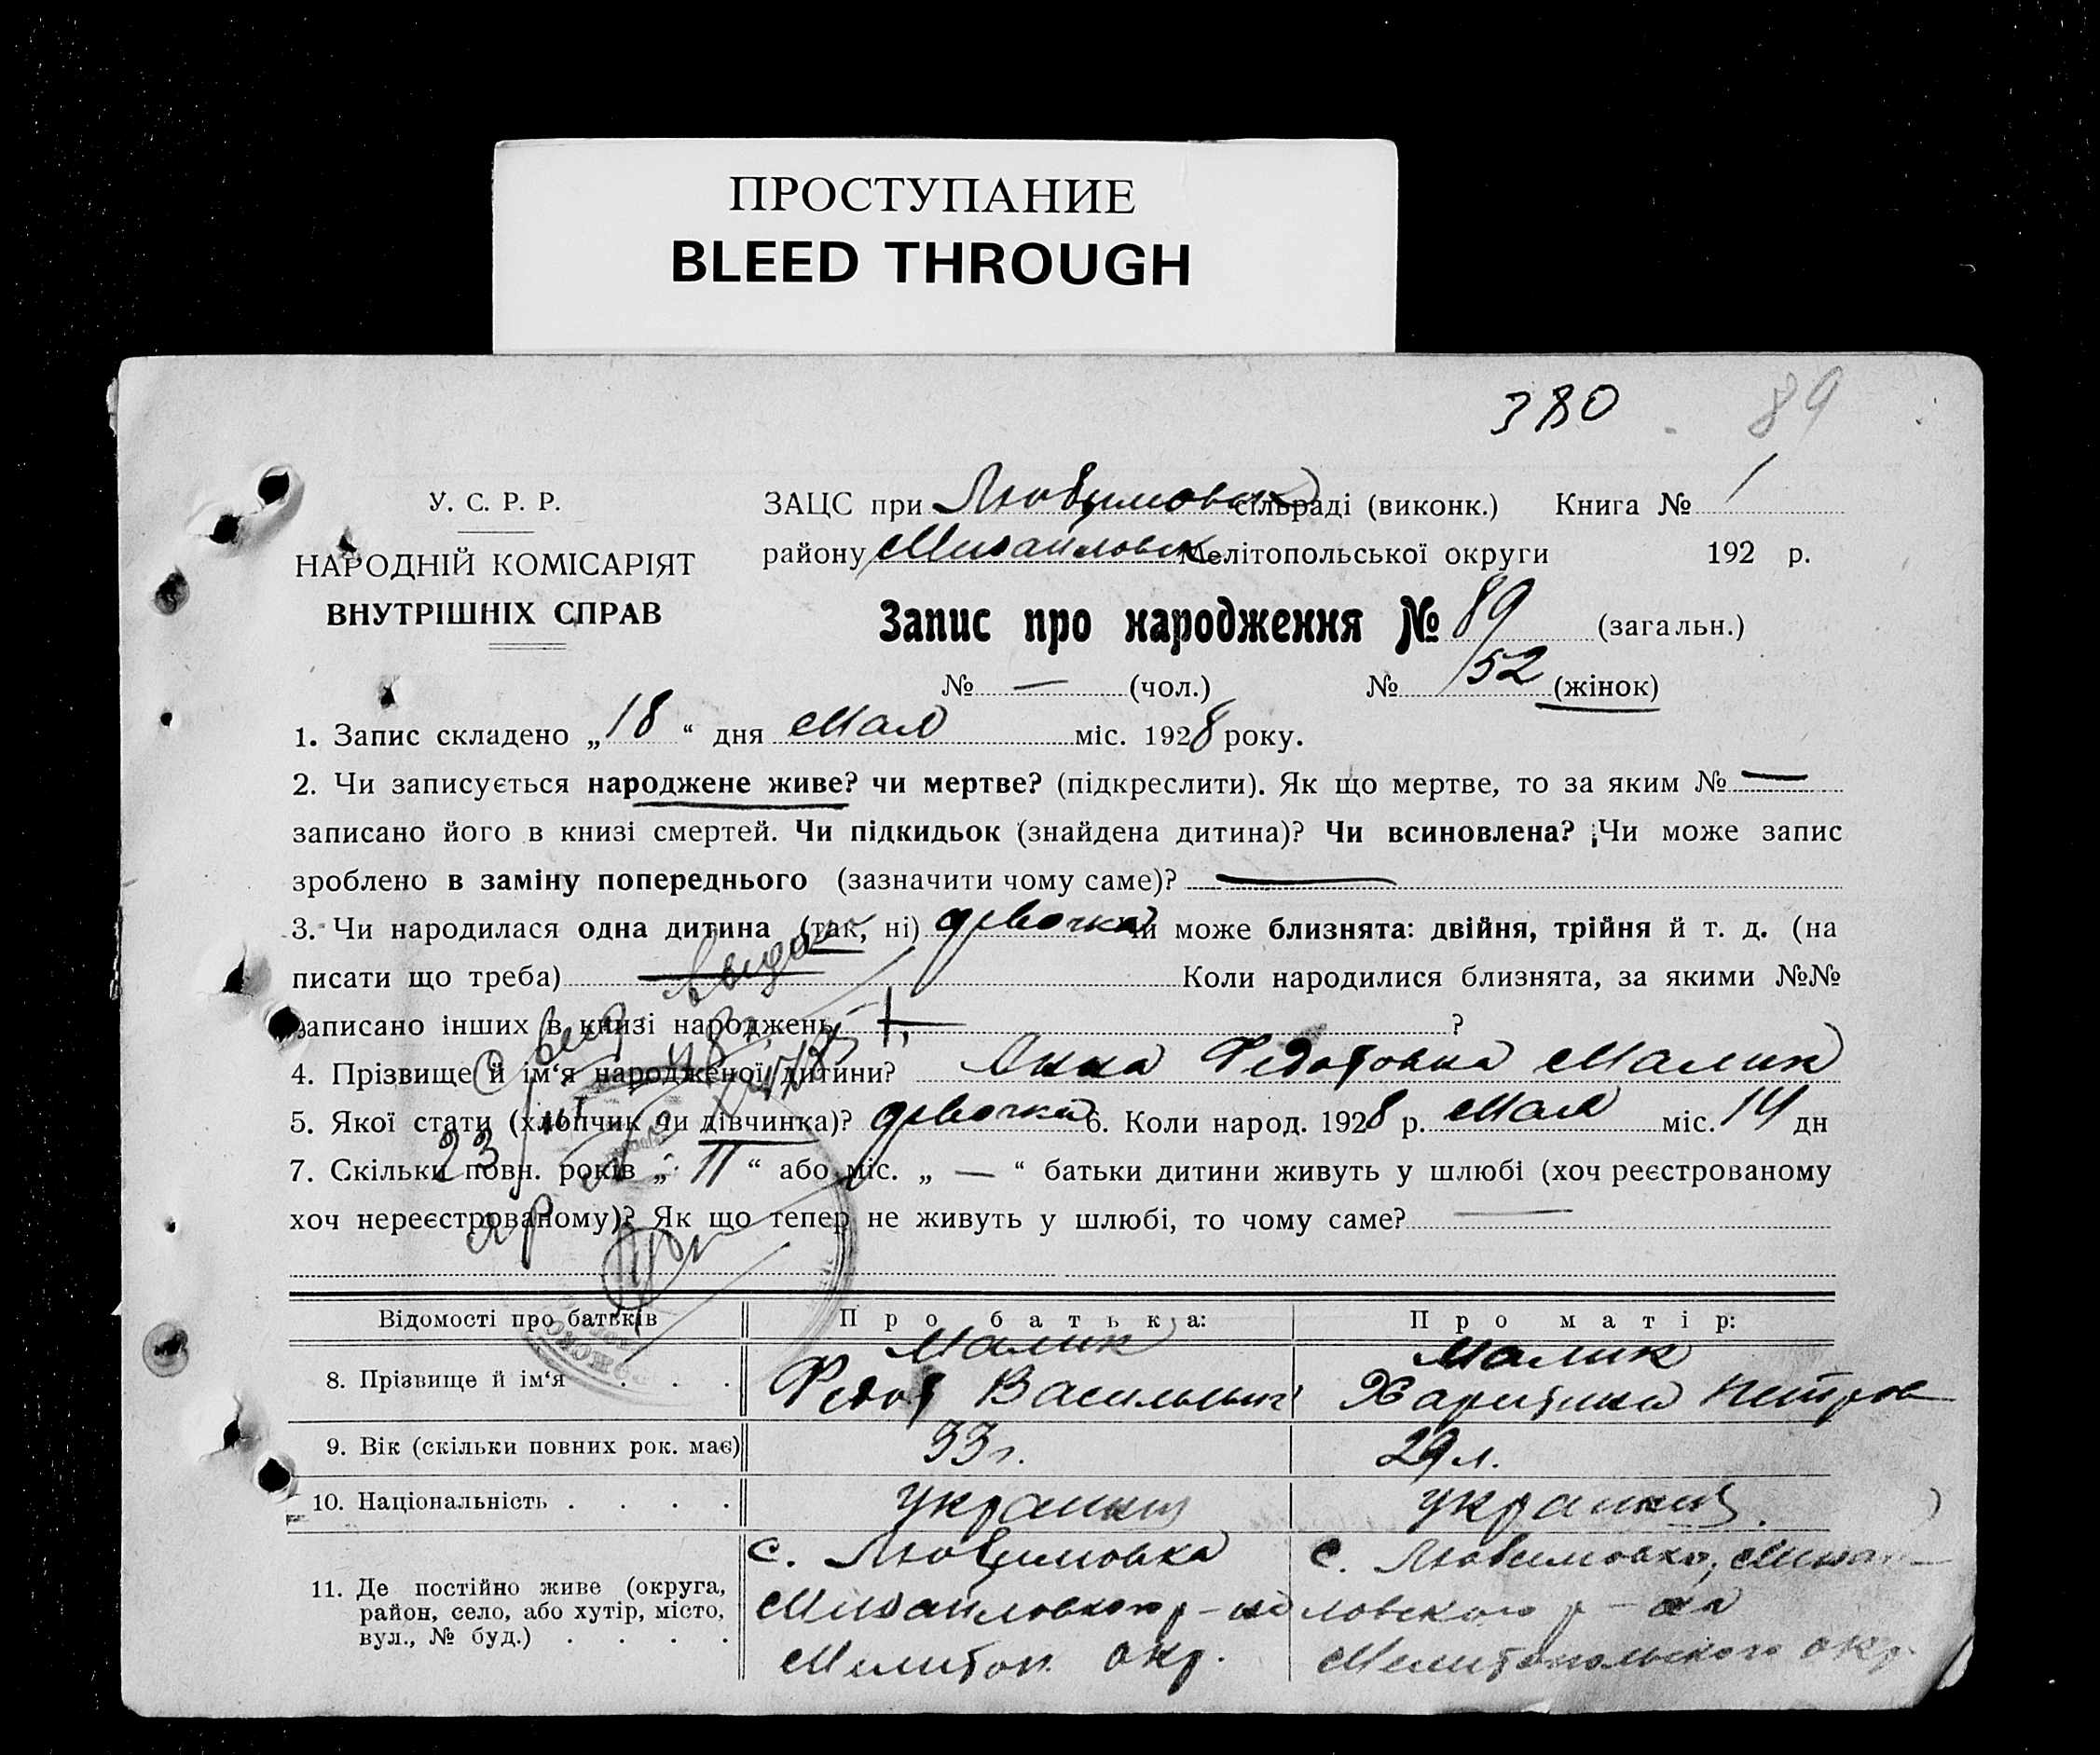 ПРОСТУПАНИЕ
BLEED THROUGH
380 89
У. С. Р. Р.
НАРОДНІЙ КОМІСАРІЯТ
ВНУТРІШНІХ СПРАВ
ЗАЦС при Любимовск сільраді (виконк.) Книга № 1
району Михайловск Мелітопольської округи 192 р.
Запис про народження № 89 (загальн.)
№ — (чол.) № 52 (жінок)
1. Запис складено „18“ дня Мая міс. 1928 року.
2. Чи записується народжене живе? чи мертве? (підкреслити). Як що мертве, то за яким № —
записано його в книзі смертей. Чи підкидьок (знайдена дитина)? Чи всиновлена? Чи може запис
зроблено в заміну попереднього (зазначити чому саме)? —
3. Чи народилася одна дитина (так, ні) девочка Чи може близнята: двійня, трійня й т. д. (на
писати що треба) — Коли народилися близнята, за якими №№
записано інших в книзі народжень ?
4. Прізвище й ім‘я народженої дитини? Анна Федотовна Малик
5. Якої стати (хлопчик чи дівчинка)? девочка 6. Коли народ. 1928 р. Мая міс. 14 дн
7. Скільки повн. років „11“ або міс. „—“ батьки дитини живуть у шлюбі (хоч реєстрованому
хоч нереєстрованому)? Як що тепер не живуть у шлюбі, то чому саме? —
Відомості про батьків Про батька: Про матір:
8. Прізвище й ім‘я . . . Малик Федот Васильевич Малик Харитина Петров
9. Вік (скільки повних рок. має) 33 г. 29 л.
10. Національність . . . . украинц украинц.
11. Де постійно живе (округа,
район, село, або хутір, місто,
вул., № буд.) . . . .
с. Любимовка
Михайловского р-на
Мелитоп. окр.
с. Любимовка, Михай-
ловского р-на
Мелитопольского окр.